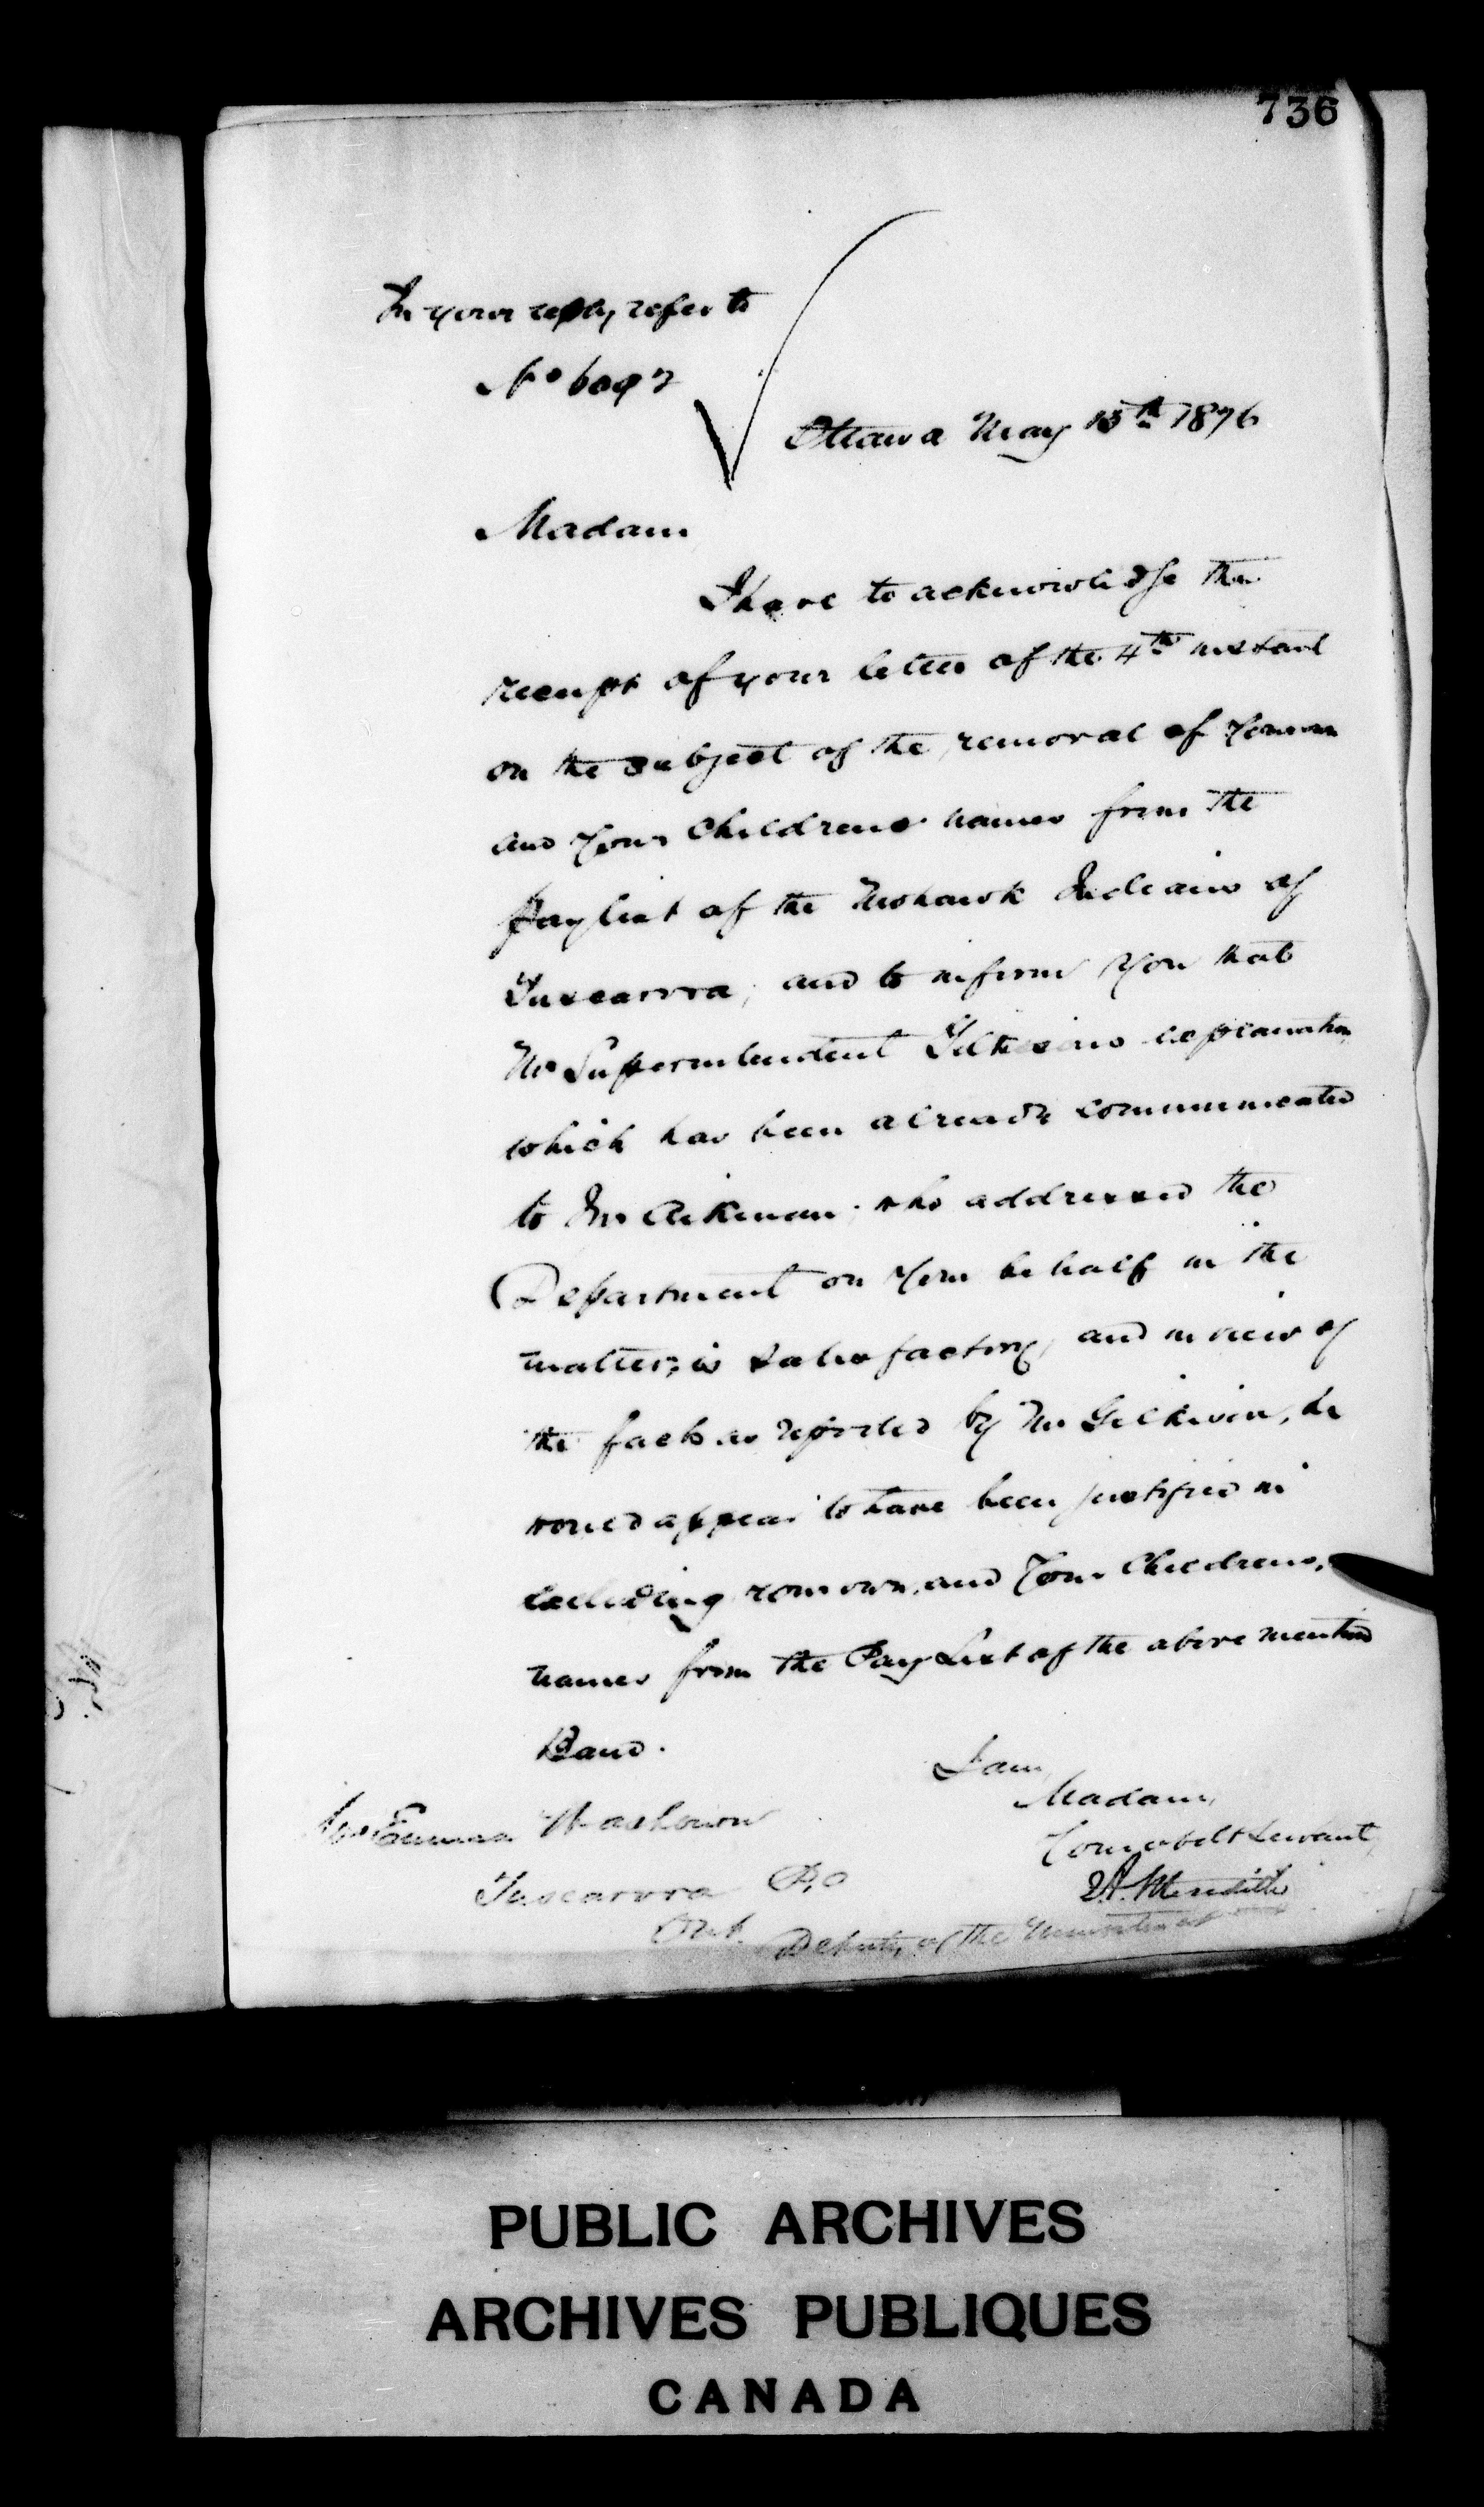 736
In your reply refer to
No 6097
Ottawa May 15th 1876
Madam
I have to acknowledge the
receipt of your letter of the 4th instant
on the subject of the removal of your own
and your childrens names from the
paylist of the Mohawk Indians of
Tuscarora, and to inform you that
Mr Superintendent Gilkisons explanation
which has been already communicated
to Mr Aikman, who addressed the
Department on your behalf in the
matter, is satisfactory, and in view of
the facts as reported by Mr Gilkison, he
would appear to have been justified in
excluding your own, and your Childrens,
names from the Pay List of the above mention
Band.
I am,
Madam,
Your obdt Servant,
Mrs Emma
Tuscarora P.O
Ont.
Meredith
Deputy of the Minister
PUBLIC ARCHIVES
ARCHIVES PUBLIQUES
CANADA